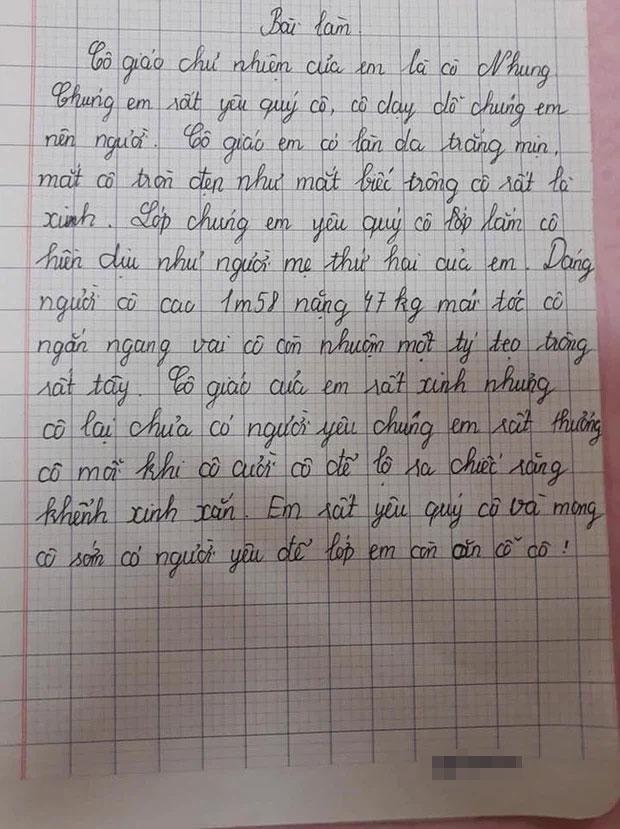 Bài làm
Cô giáo chủ nhiệm của em là cô Nhung
Chúng em rất yêu quý cô, cô dạy dỗ chúng em
nên người. Cô giáo em có làn da trắng mịn,
mắt cô tròn đẹn như mắt biếc trông cô rất là
xinh. Lớp chúng em yêu quý cô lớp lắm cô
hiền dịu như người mẹ thứ hai của em. Dáng
người cô cao 1m58 nặng 47kg mái tóc cô
ngắn ngang vai cô còn nhuộm một tý tẹo trông
rất tây. Cô giáo của em rất xinh nhưng
cô lại chưa có người yêu chúng em rất thương
cô mỗi khi cô cười cô để lộ ra chiếc răng
khểnh xinh xắn. Em rất yêu quý cô và mong
cô sớm có người yêu để lớp em còn ăn cỗ cô!